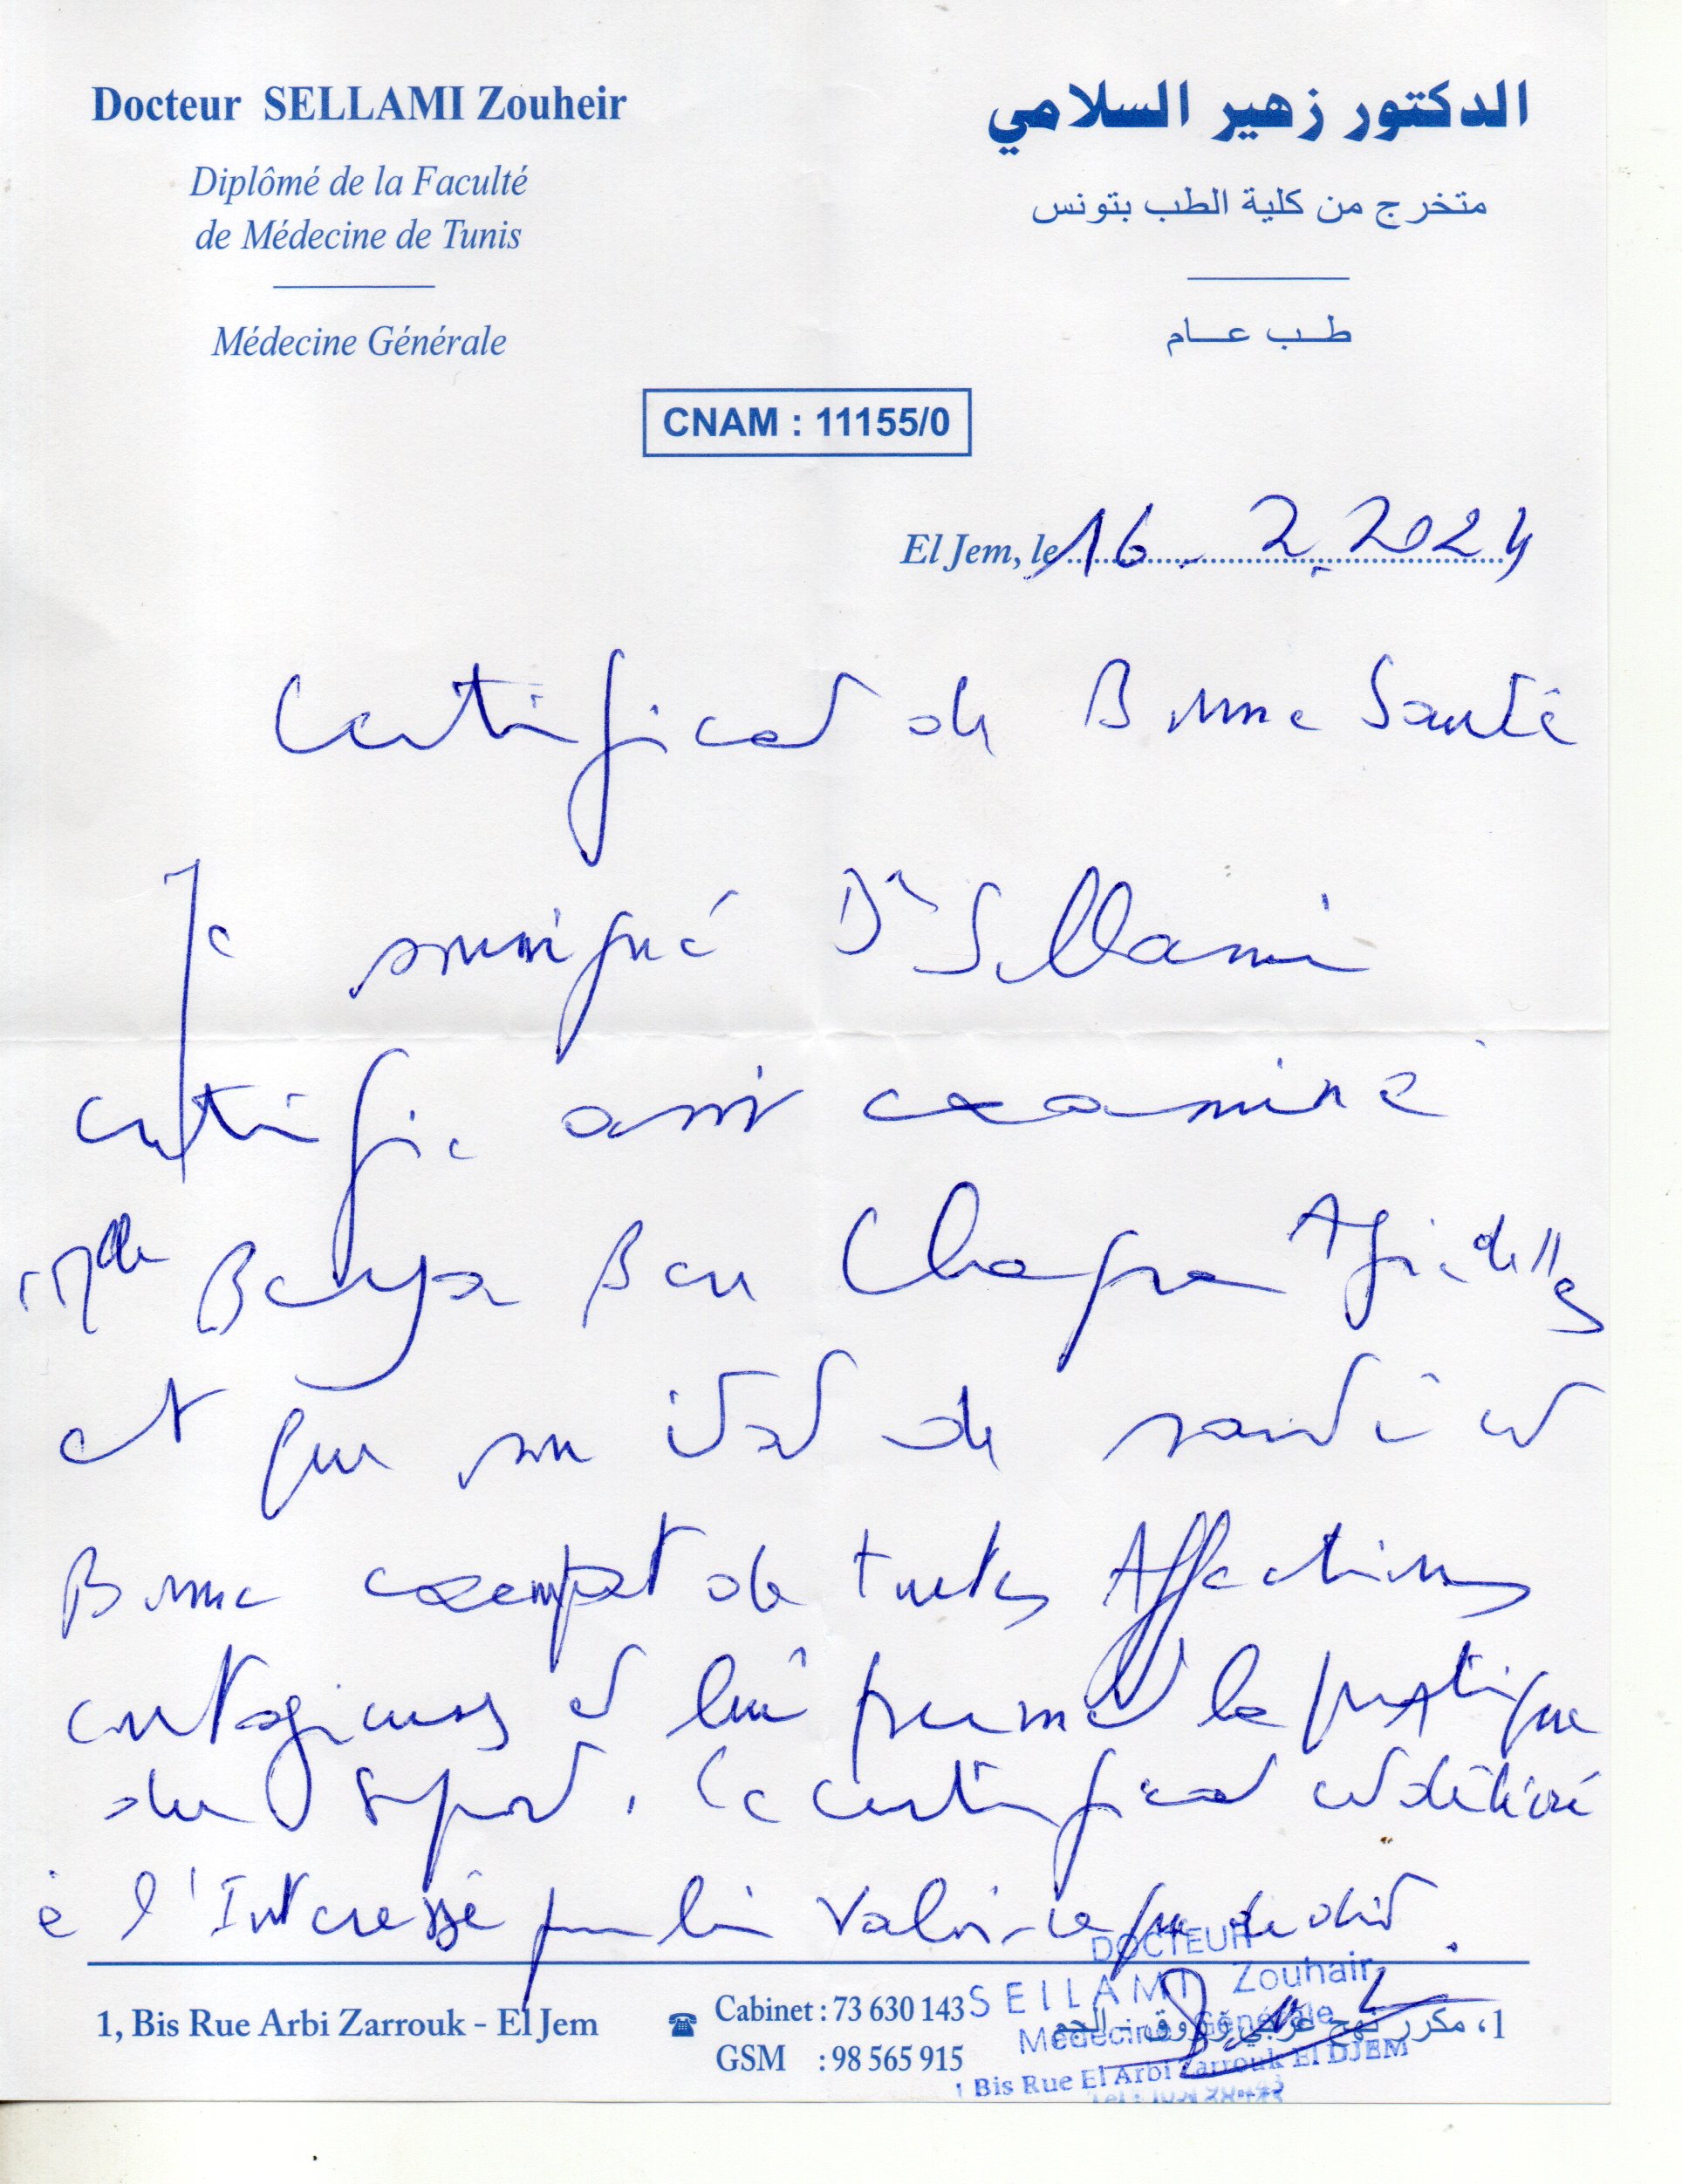 Docteur SELLAMI Zouheir
Diplômé de la Faculté
de Médecine de Tunis
Médecine Générale
الدكتور زهير السلامي
متخرج من كلية الطب بتونس
طب عام
CNAM : 11155/0
El Jem, le 16 - 2. 2024
Certificat de Bonne Santé
Je soussigné Dr Sellami
certifie avoir examiné
Ben
et que son état de santé est
Bonne exempt de toutes Affections
contagieuses et lui permet la pratique
du sport. Ce certificat est délivré
à l'Interessé pour lui valoir ce que de droit.
1, Bis Rue Arbi Zarrouk - El Jem
Cabinet : 73 630 143
GSM : 98 565 915
1، مكرر نهج عرابي زروق - الجم
DOCTEUR
SELLAMI Zouhair
Médecine Générale
1 Bis Rue El Arbi Zarrouk El DJEM